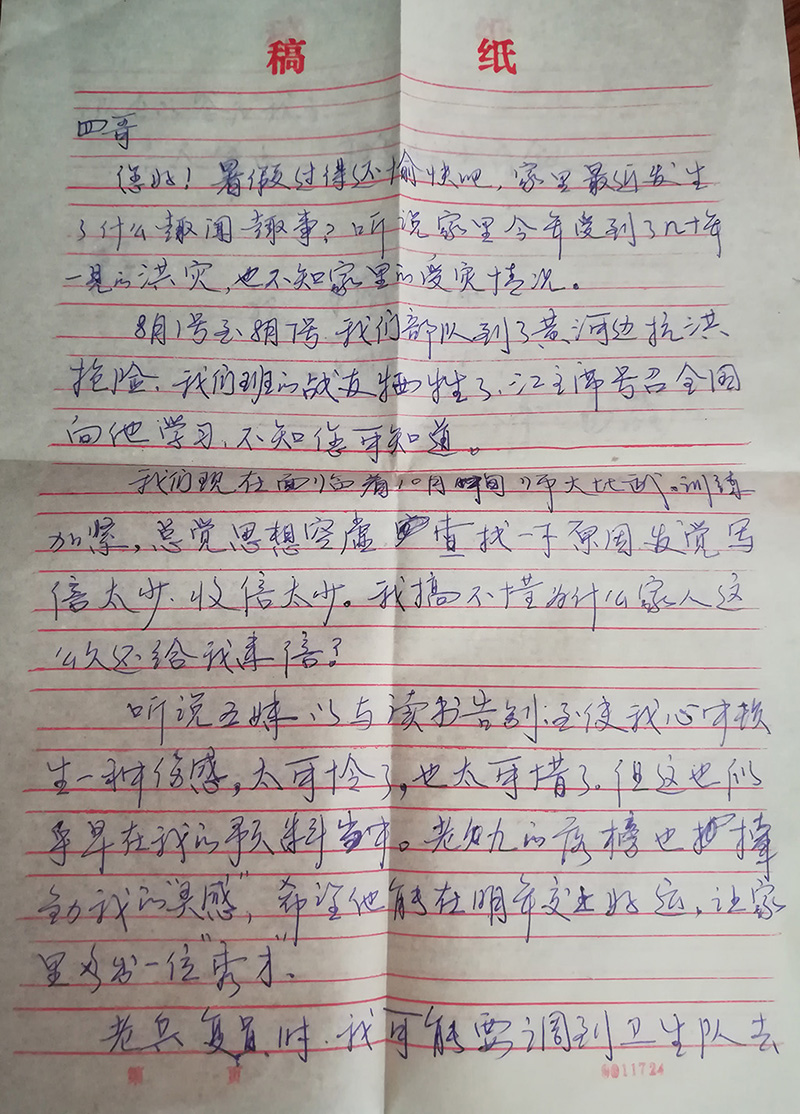 稿 纸
四哥
您好！暑假过得还愉快吧，家里最近发生
了什么趣闻趣事？听说家里今年受到了几十年
一见的洪灾，也不知家里的受灾情况。
8月1号至8月7号，我们部队到了黄河边抗洪
抢险，我们班的战友牺牲了，江主席号召全国
向他学习，不知您可知道。
我们现在面临着10月师大比武。训练
加紧，总觉思想空虚 查找一下原因发觉写
信太少，收信太少。我搞不懂为什么家人这
么久还给我来信？
听说五妹以与读书告别，至使我心中
生一种伤感，太可怜了，也太可惜了。但这也似
乎早在我的预料当中。老幺的落榜也
动我的"灵感"，希望他能在明年交上好运，让家
里多出一位"秀才"。
老兵复员时，我可能要调到卫生队去
第 页 11724